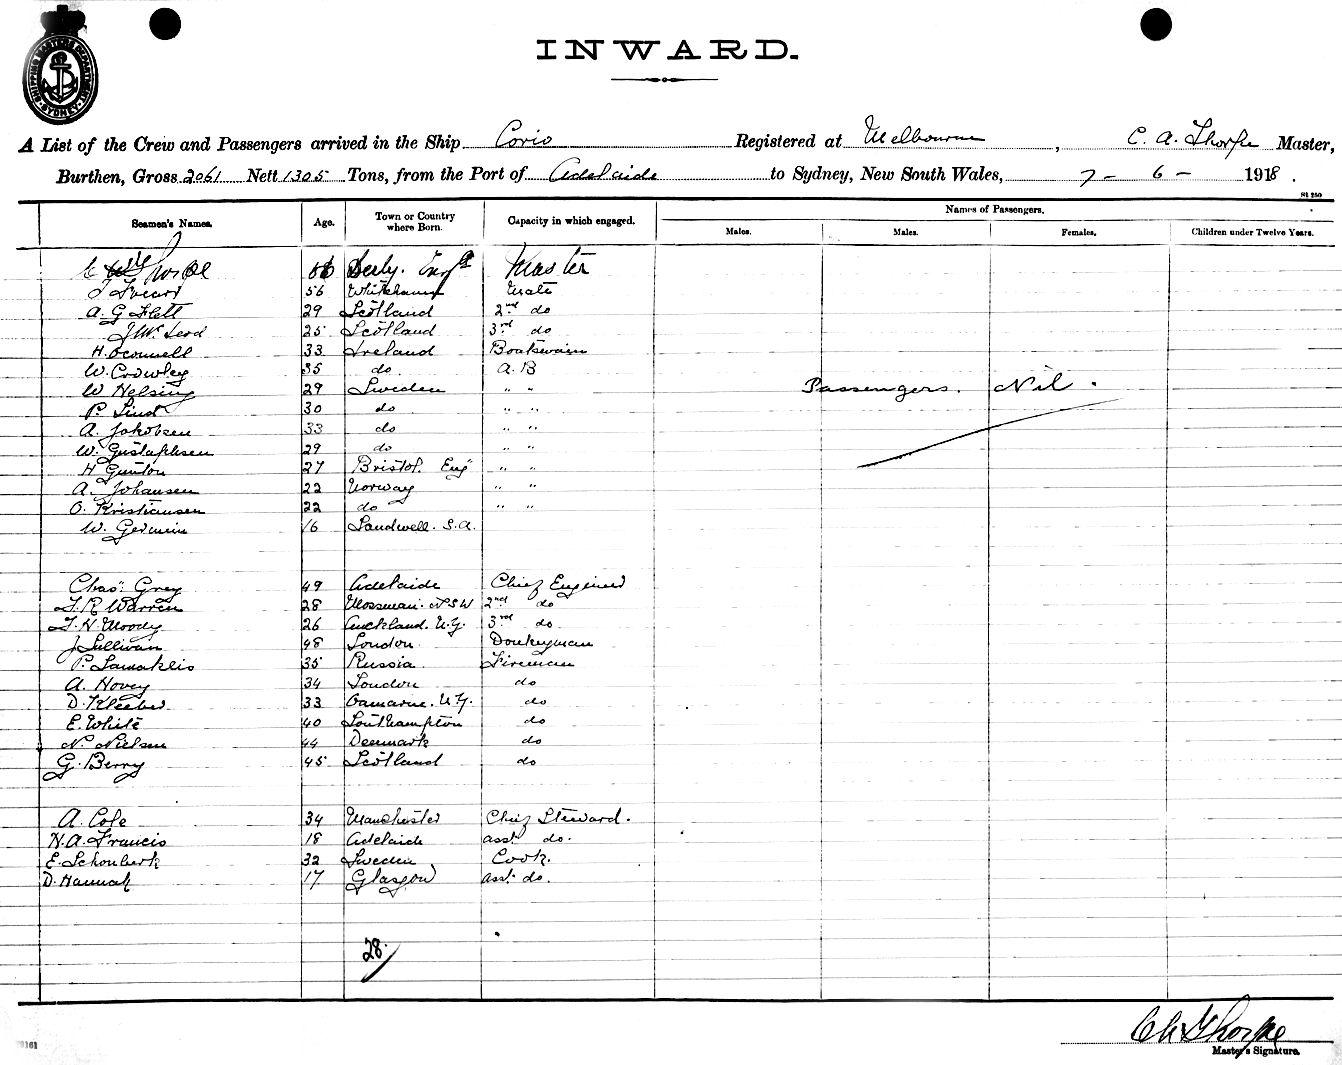 SHIPPING MASTERS DEPARTMENT SYDNEY
INWARD.
A List of the Crew and Passengers arrived in the Ship Corio Registered at Melbourne, C. A. Thorpe Master,
Burthen, Gross 2061 Nett 1305 Tons, from the Port of Adelaide to Sydney, New South Wales, 7 - 6 - 1918.
Seamen's Names. Age. Town or Country where Born. Capacity in which engaged. Names of Passengers.
Males. Males. Females. Children under Twelve Years.
C Thorpe Derby. Engd Master
56 Mate
A. G Flett 29 Scotland 2nd do
J Mc Leod 25 Scotland 3rd do
H. Oconnell 33 Ireland Boatswain
W. Crowley 35 do A. B
W Helsing 29 Sweden " " Passengers. Nil.
P. Lind 30 do " "
A. Jakobsen 33 do " "
W. Gustafsen 29 do " "
H Gunton 27 Bristol. Eng " "
A. Johansen 22 Norway " "
O. Kristiansen 22 do " "
W. Germein 16 S.A.
Chas. Grey 49 Adelaide Chief Engineer
T. R Warren 28 Mossman. NSW 2nd do
T. H. Moody 26 Auckland. N.Z. 3rd do
J Sullivan 48 London Donkeyman
P. Samaklis 35 Russia Fireman
A. Hovey 34 London do
D. 33 Oamarue. N.Z. do
E. White 40 Southampton do
N. Nielsen 44 Denmark do
G. Berry 45 Scotland do
A. Cole 34 Manchester Chief Steward.
H. A. Francis 18 Adelaide asst do.
E. Schonberk 32 Sweden Cook.
D. Hannah 17 Glasgow asst. do.
28
C A Thorpe
Master's Signature.